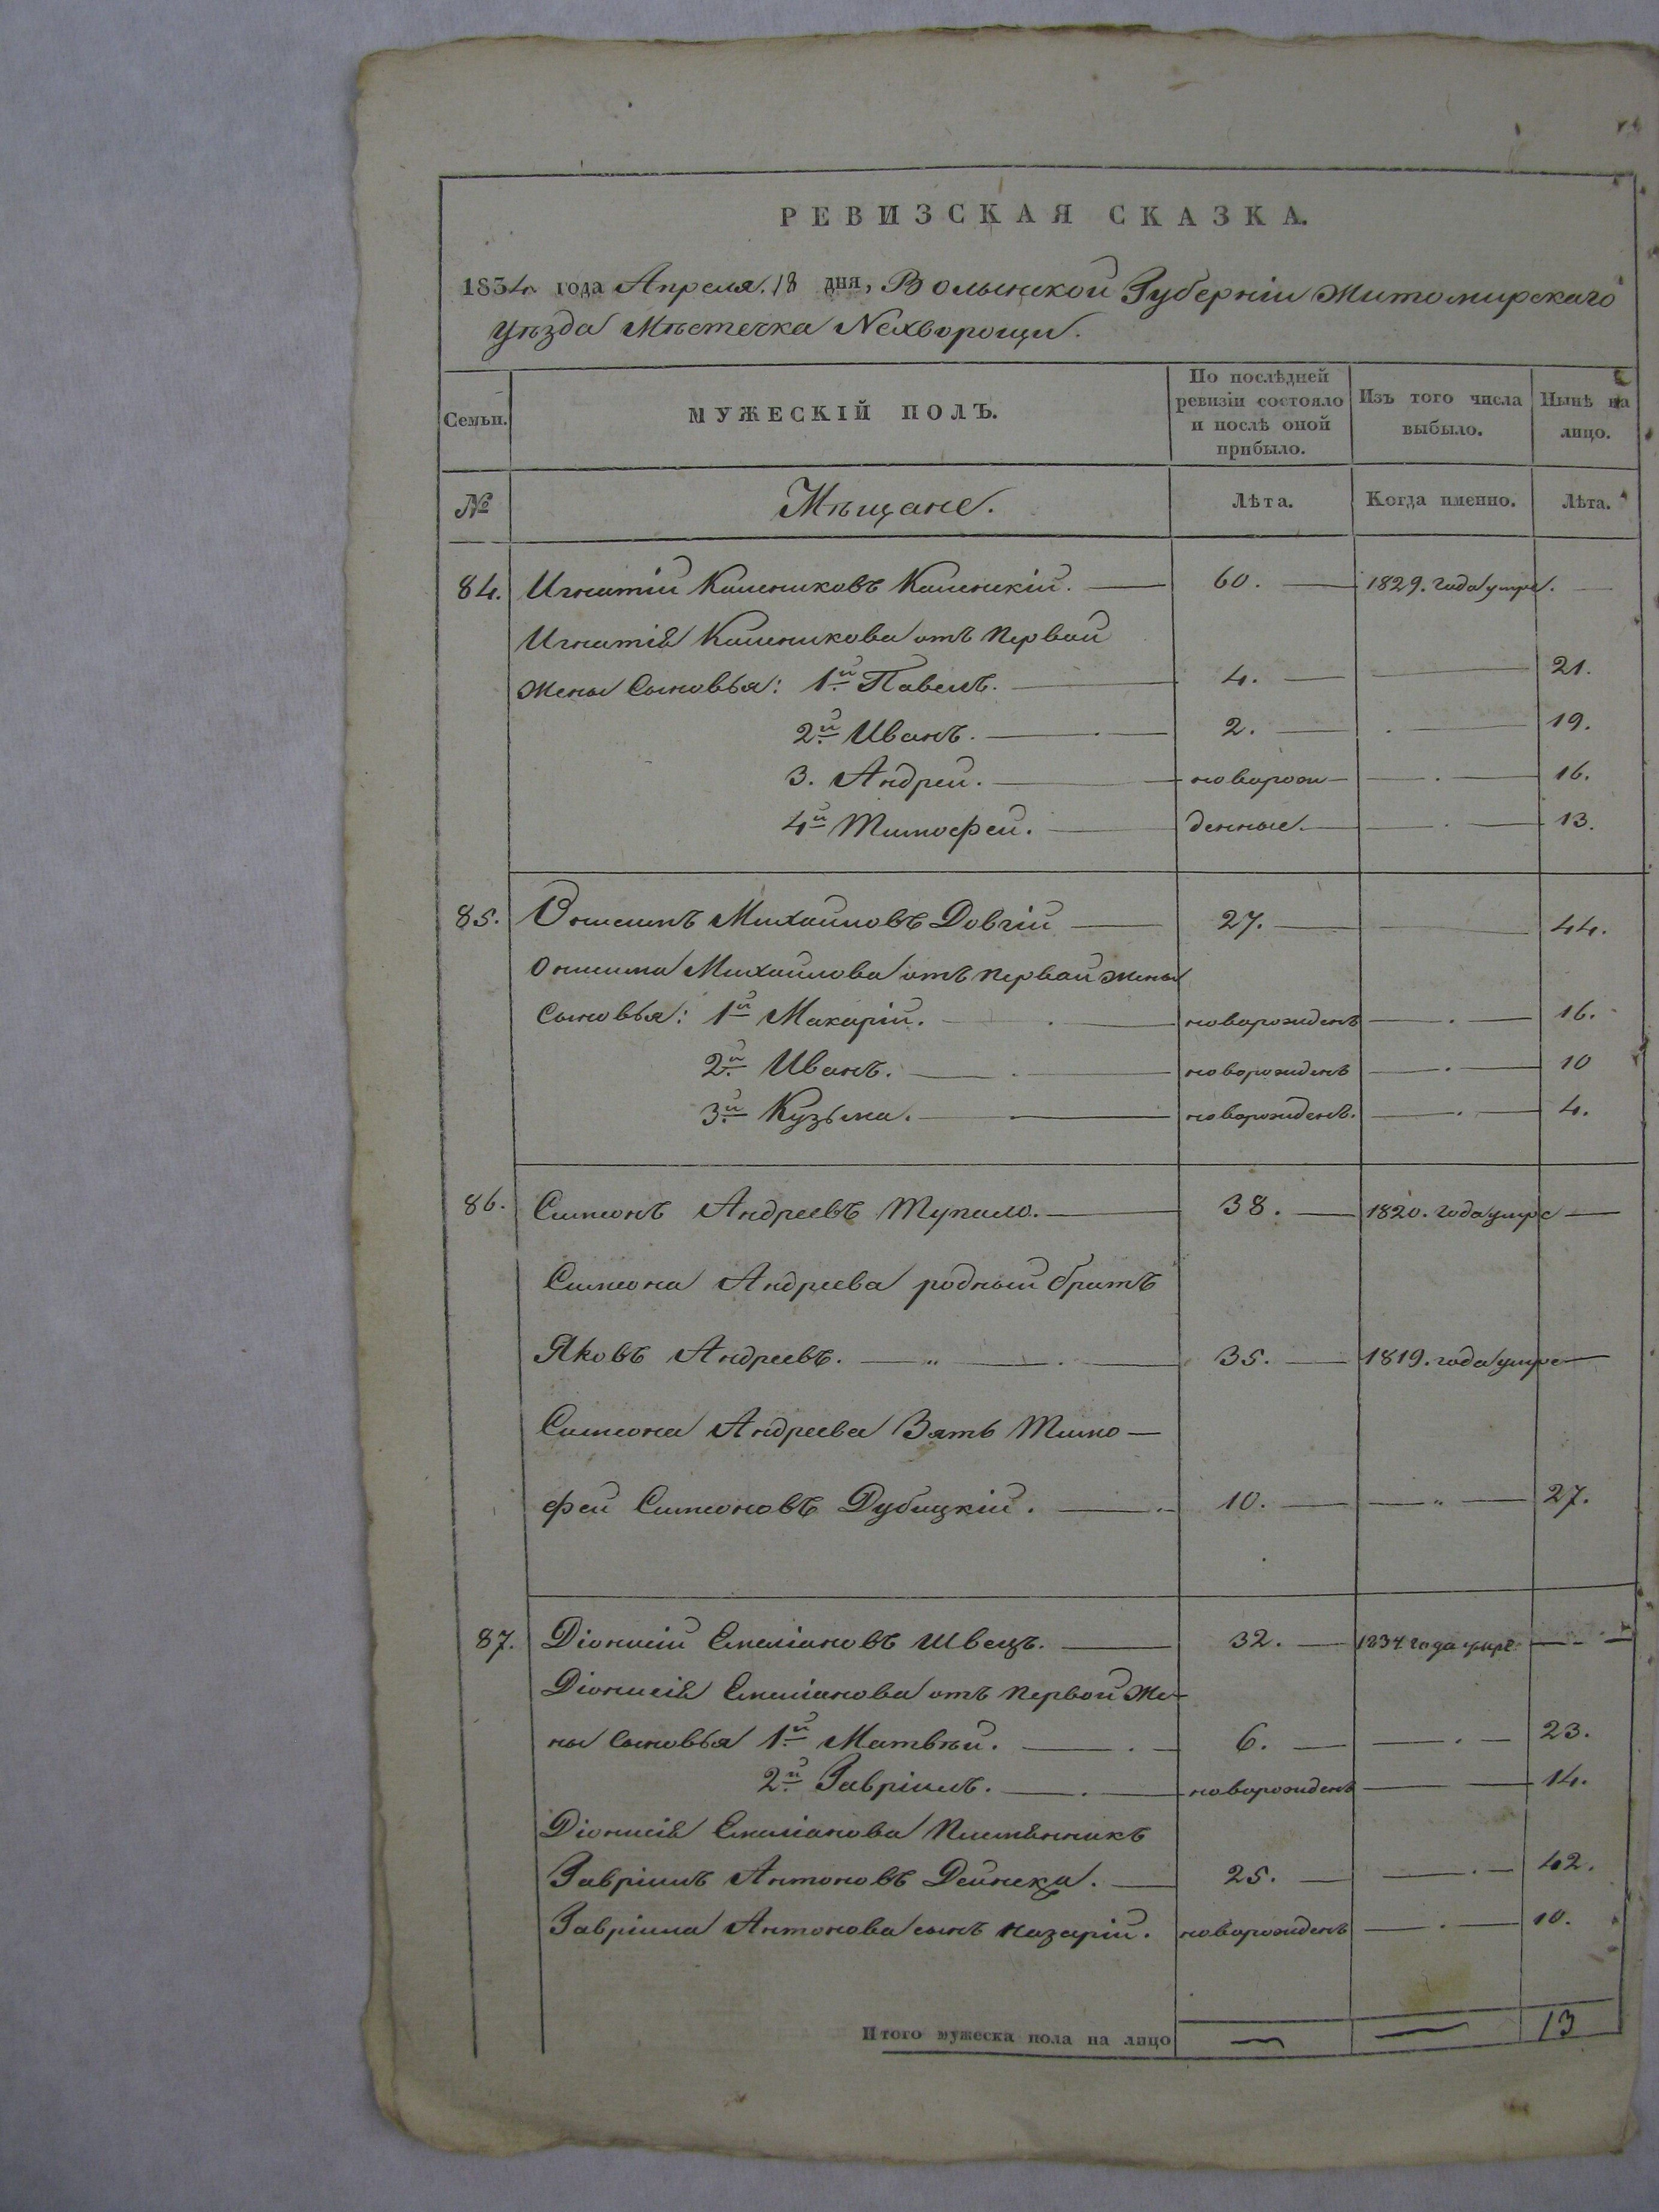 РЕВИЗСКАЯ СКАЗКА.
1834 года Апреля 18 дня, Волынской Губерніи Житомирскаго
уѣзда Мѣстечка Нехворощи.
Семьи.
МУЖЕСКІЙ ПОЛЪ.
По послѣдней ревизіи состояло и послѣ оной прибыло.
Изъ того числа выбыло.
Нынѣ на лицо.
№
Мѣщане.
Лѣта.
Когда именно.
Лѣта.
84. Игнатій Калениковъ Каленскій. 60. 1829. года умре.
Игнатія Каленикова отъ первой
жены сыновья: 1й Павелъ. 4. 21.
2й Иванъ. 2. 19.
3. Андрей. новорож- 16.
4й Тимофей. денные. 13.
85. Онисимъ Михайловъ Довгій 27. 44.
Онисима Михайлова отъ первой жены
сыновья: 1й Макарій. новорожденъ 16.
2й Иванъ. новорожденъ 10
3й Кузьма. новорожденъ. 4.
86. Симеонъ Андреевъ Тупало. 38. 1820. года умре
Симеона Андреева родный братъ
Яковъ Андреевъ. 35. 1819. года умре
Симеона Андреева Зять Тимо-
фей Симеоновъ Дубицкій. 10. 27.
87. Діонисій Емеліановъ Швецъ. 32. 1834 года умре
Діонисія Емеліанова отъ первой же-
ны сыновья 1й Матвѣй. 6. 23.
2й Гавріилъ. новорожденъ 14.
Діонисія Емеліанова племянникъ
Гавріилъ Антоновъ Дейнека. 25. 42.
Гавріила Антонова сынъ Назарій. новорожденъ 10.
Итого мужеска пола на лицо 13